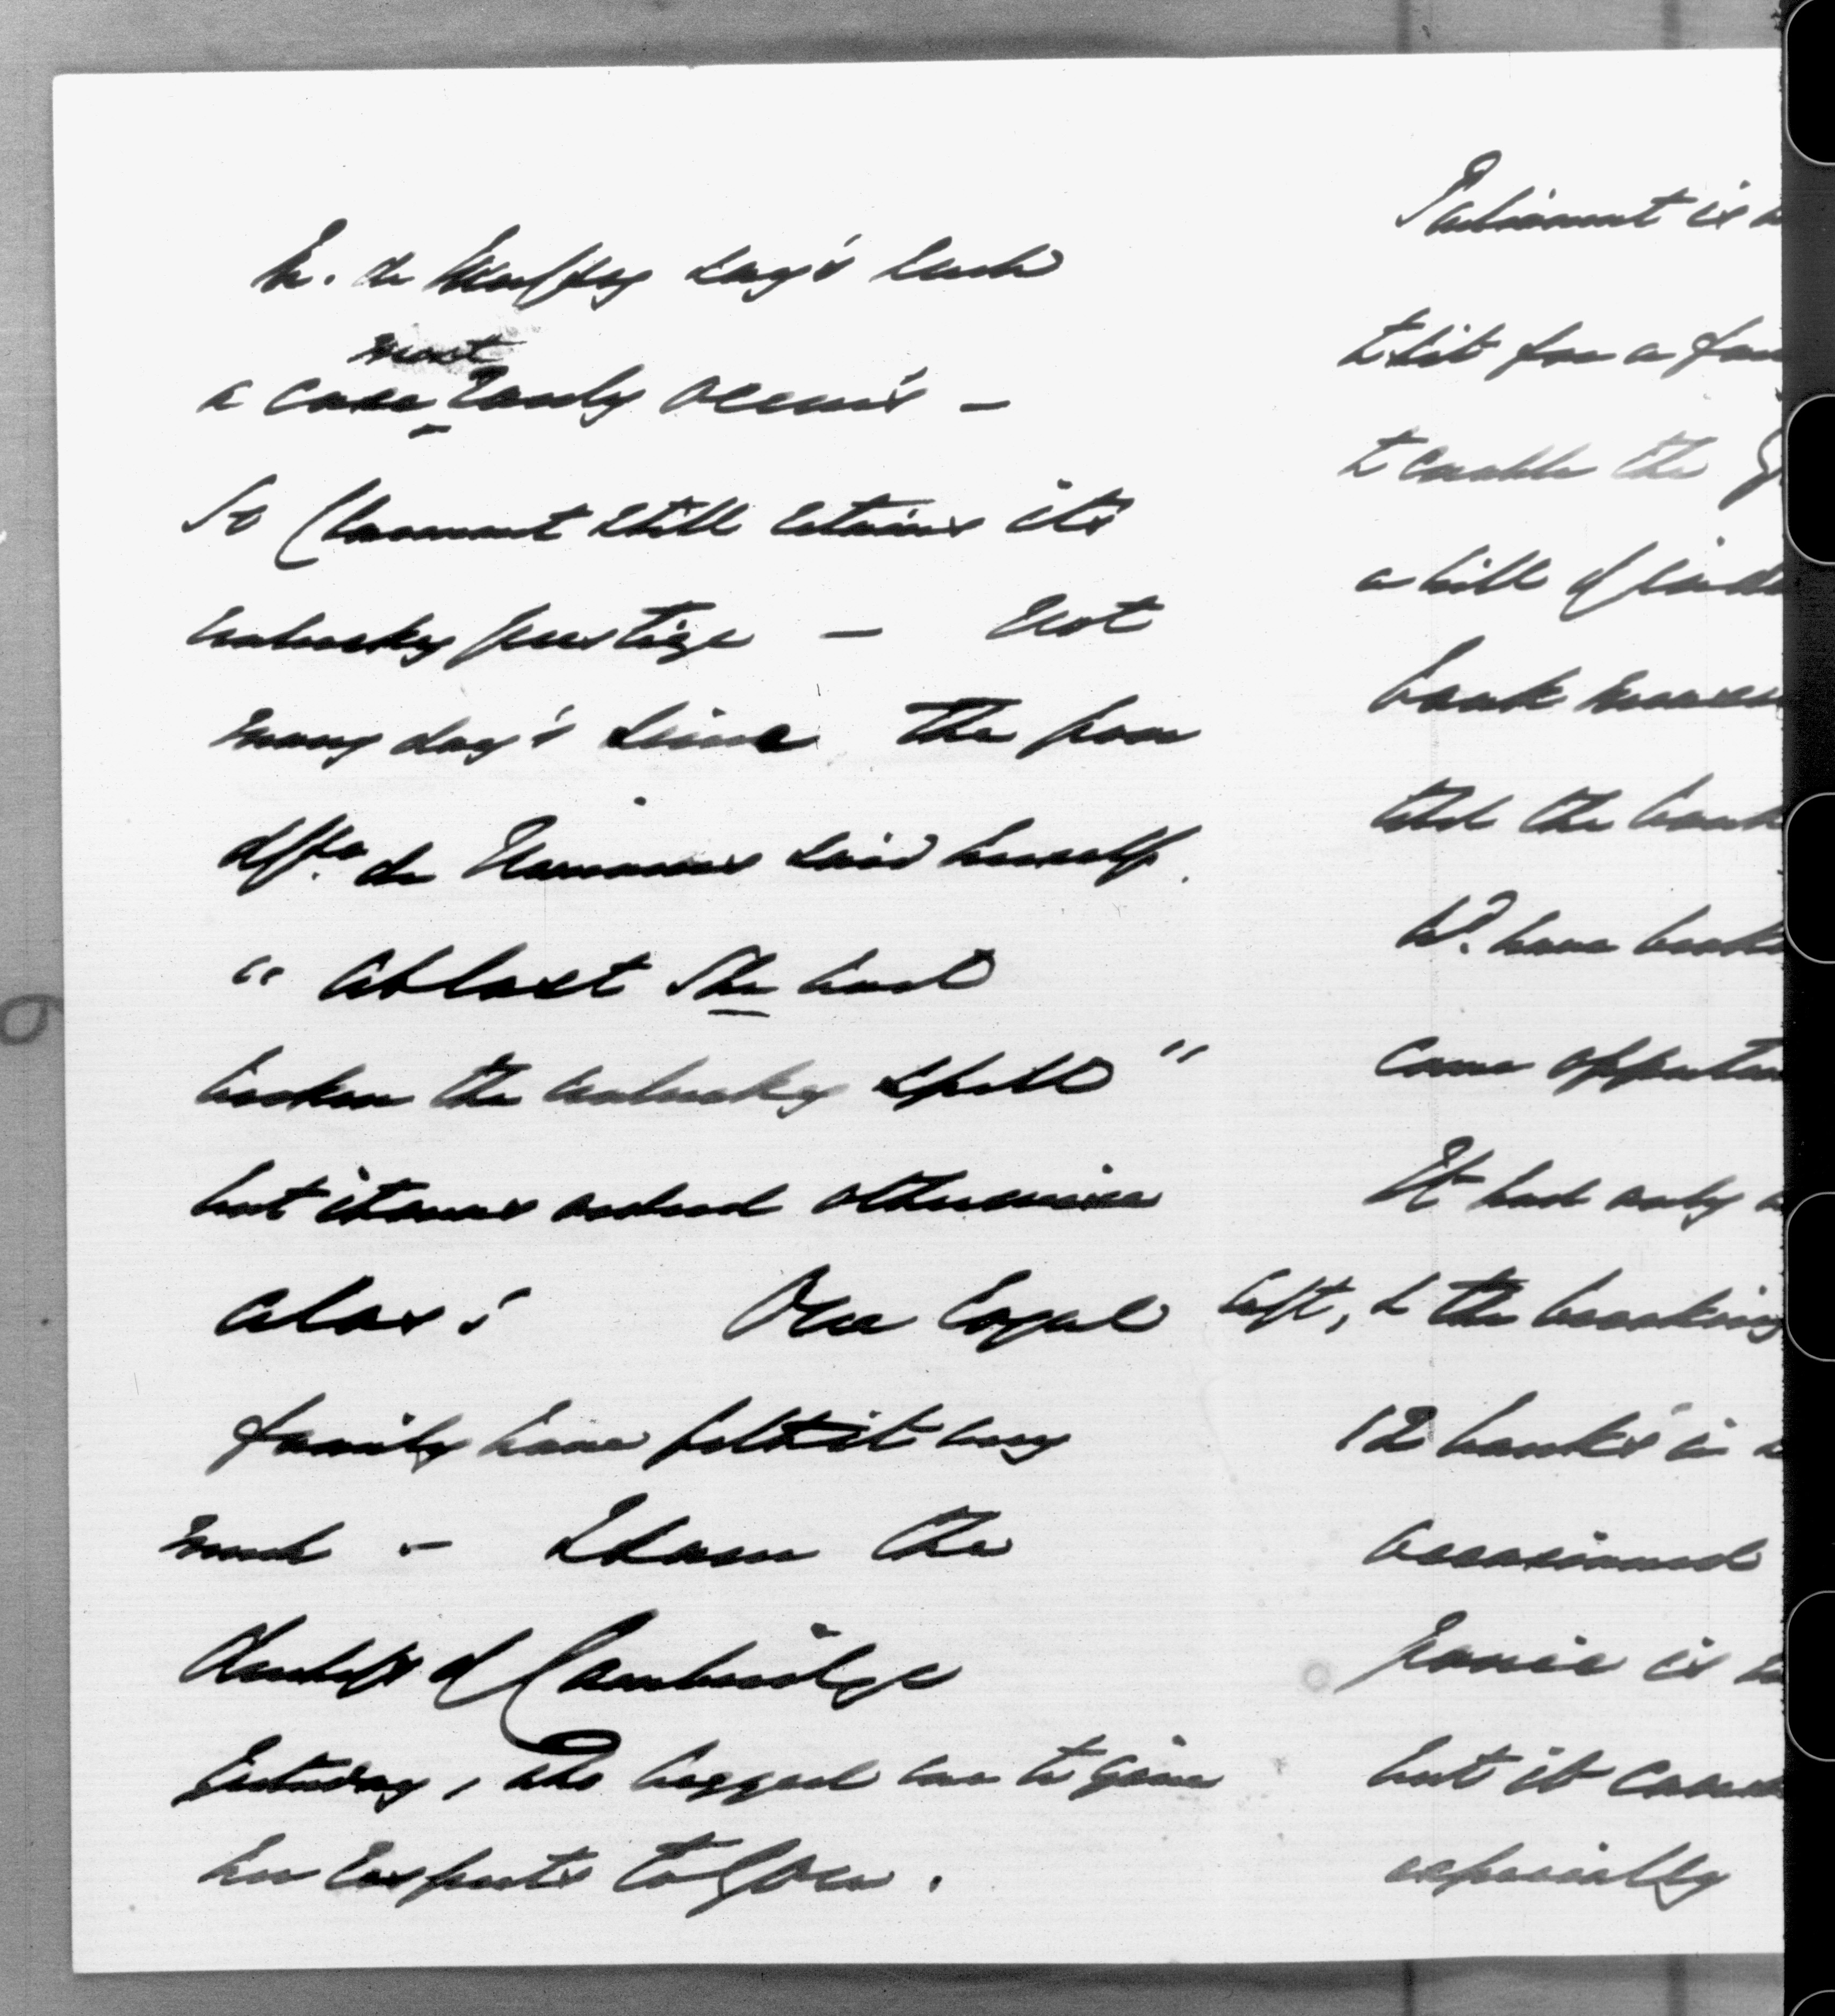 says such
a case most rarely occurs —
So Claremont still retains its
unlucky prestige — Not
many days since the poor
Dss. de Nemours said herself.
" At last She had
broken the unlucky spell "
but it was ordered otherwise
alas! Our Royal
family have felt it very
much — I saw the
Duchess of Cambridge
Yesterday, who begged me to give
her respects to You.
Parliament is
to sit for a few
to enable the
a bill of
bank
told the bank
We have
come
It had only
left, & the breaking
12 banks in
occasioned
panic is
but it
especially